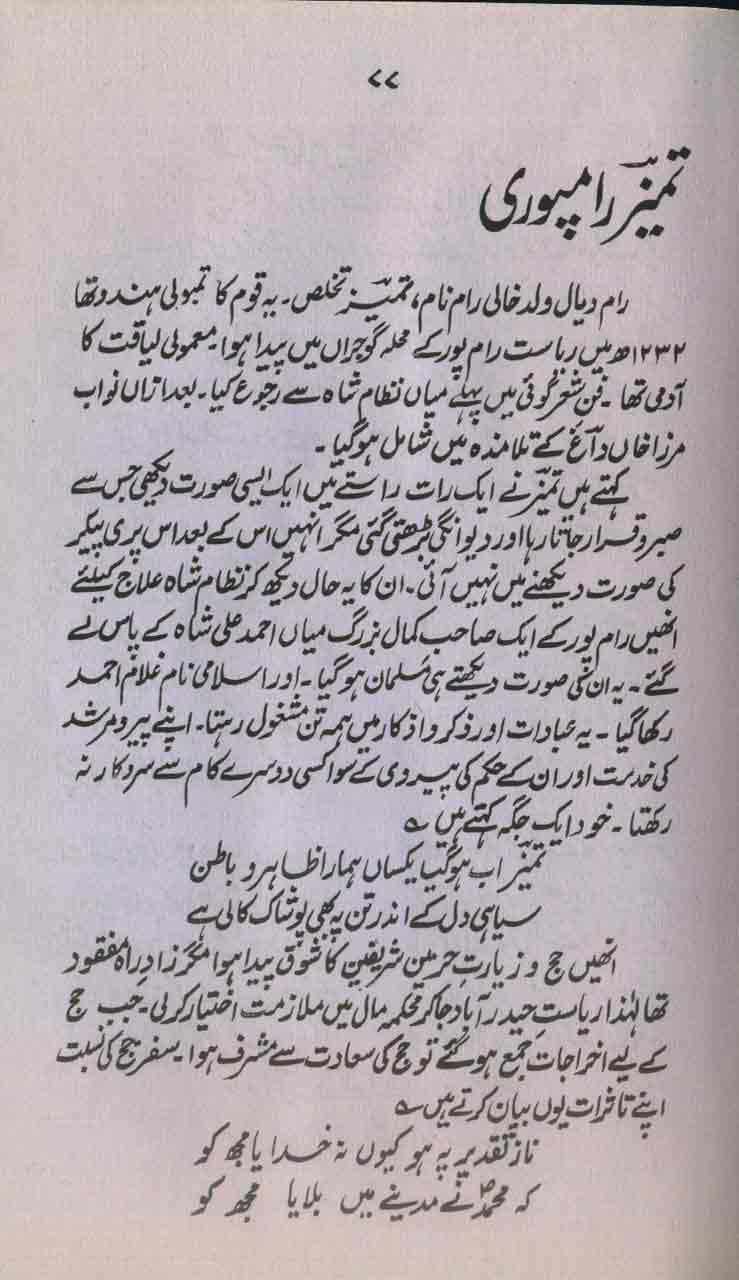 ۷۷
تمیز رامپوری
رام دیال ولد خالی رام نام، تمیز تخلص۔ یہ قوم کا تمبولی ہندو تھا
۱۲۳۲ھ میں ریاست رام پور کے محلہ گوجراں میں پیدا ہوا۔ معمولی لیاقت کا
آدمی تھا۔ فن شعر گوئی میں پہلے میاں نظام شاہ سے رجوع کیا۔ بعد ازاں نواب
مرزا خاں داغ کے تلامذہ میں شامل ہوگیا۔
کہتے ہیں تمیز نے ایک رات راستے میں ایک ایسی صورت دیکھی جس سے
صبر و قرار جاتا رہا اور دیوانگی بڑھتی گئی مگر انہیں اس کے بعد اس پری پیکر
کی صورت دیکھنے میں نہیں آئی۔ ان کا یہ حال دیکھ کر نظام شاہ علاج کیلئے
انھیں رام پور کے ایک صاحب کمال بزرگ میاں احمد علی شاہ کے پاس لے
گئے۔ یہ ان کی صورت دیکھتے ہی مسلمان ہوگیا۔ اور اسلامی نام غلام احمد
رکھا گیا۔ یہ عبادات اور ذکر و اذکار میں ہمہ تن مشغول رہتا۔ اپنے پیر و مرشد
کی خدمت اور ان کے حکم کی پیروی کے سوا کسی دوسرے کام سے سروکار نہ
رکھتا۔ خود ایک جگہ کہتے ہیں ؎
تمیز اب ہوگیا یکساں ہمارا ظاہر و باطن
سیاہی دل کے اندر تن پہ بھی پوشاک کالی ہے
انھیں حج و زیارتِ حرمین شریفین کا شوق پیدا ہوا مگر زادِ راہ مفقود
تھا لہٰذا ریاستِ حیدر آباد جا کر محکمہ مال میں ملازمت اختیار کرلی۔ جب حج
کے لیے اخراجات جمع ہوگئے تو حج کی سعادت سے مشرف ہوا۔ سفر حج کی نسبت
اپنے تاثرات یوں بیان کرتے ہیں ؎
ناز تقدیر پہ ہو کیوں نہ خدایا مجھ کو
کہ محمدؐ نے مدینے میں بلایا مجھ کو